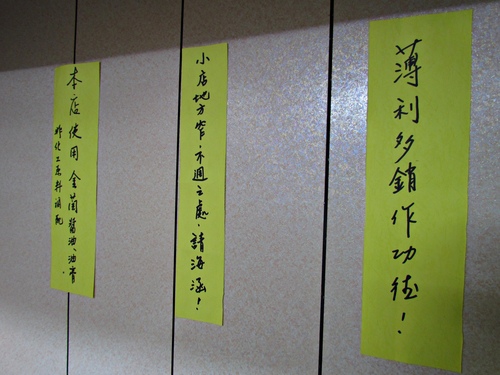 薄利多銷作功德!
小店地方窄,不週之處,請海涵!
本店使用金蘭醬油、油膏
非化工原料調配.